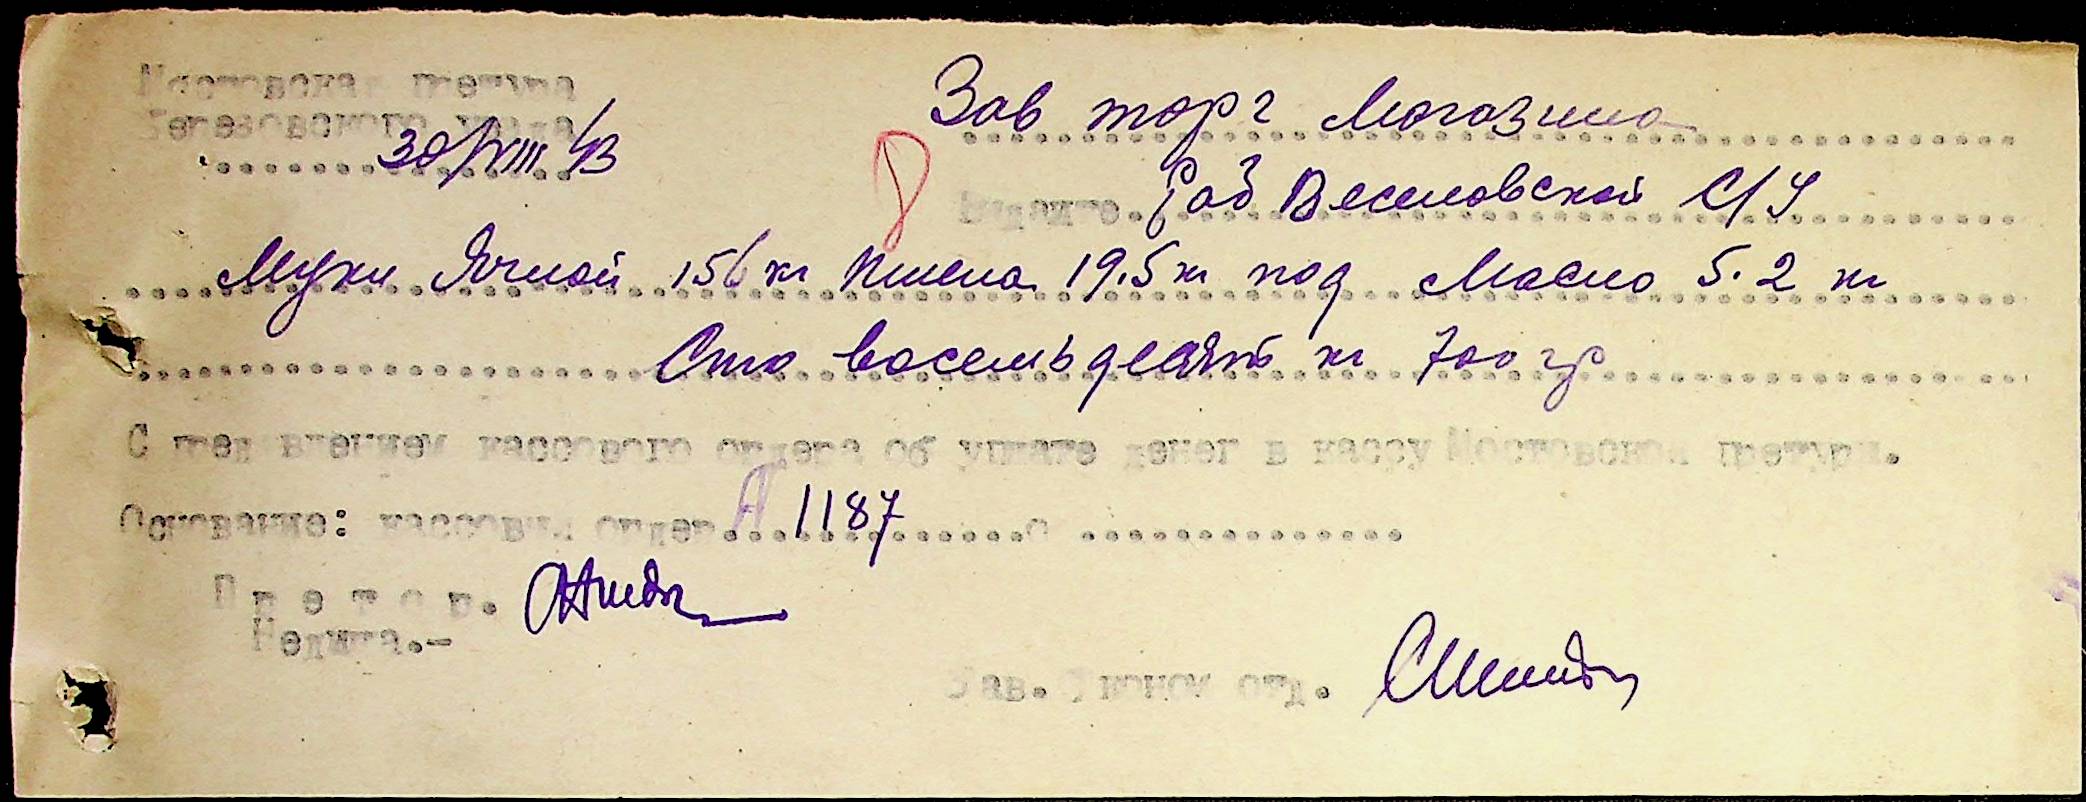 Мостовская претура
Березовского уезда
30/VIII 43
Зав торг Магазина
Выдайте. Раб Веселовской С/У
Муки Ячной 156 кг Пшена 19.5 кг под Масло 5.2 кг
Сто восемьдесят кг 700 гр
С пред'явлением кассового ордера об уплате денег в кассу Мостовской претуры.
Основание: кассовый ордер № 1187 с
Претор.
Недина.-
Зав. Эконом отд.